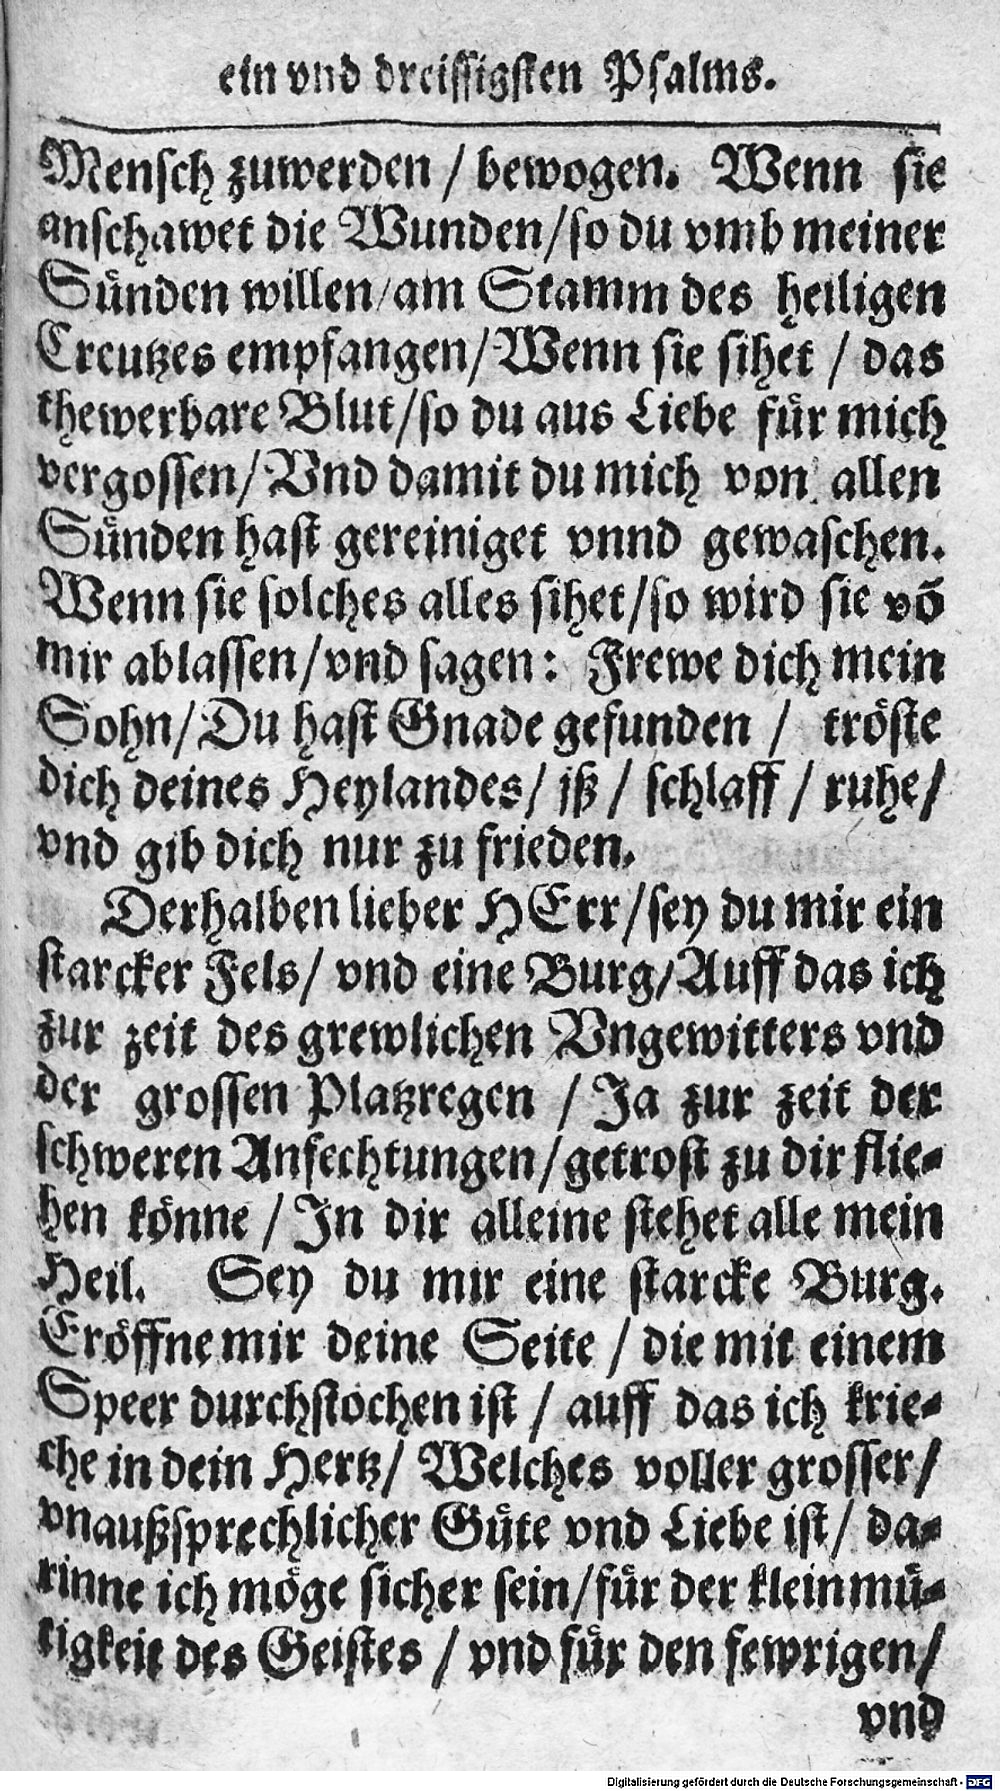 ein vnd dreissigsten Psalms.
Mensch zuwerden / bewogen. Wenn sie
anschawet die Wunden/so du vmb meiner
Sünden willen/am Stamm des heiligen
Creutzes empfangen/Wenn sie sihet / das
thewerbare Blut/so du aus Liebe für mich
vergossen/Vnd damit du mich von allen
Sünden hast gereiniget vnnd gewaschen.
Wenn sie solches alles sihet/so wird sie võ
mir ablassen/vnd sagen: Frewe dich mein
Sohn/Du hast Gnade gefunden / tröste
dich deines Heylandes/ jß / schlaff / ruhe/
vnd gib dich nur zu frieden.
Derhalben lieber HErr/sey du mir ein
starcker Fels/ vnd eine Burg/Auff das ich
zur zeit des grewlichen Vngewitters vnd
der grossen Platzregen / Ja zur zeit der
schweren Anfechtungen/getrost zu dir flie-
hen könne / In dir alleine stehet alle mein
Heil. Sey du mir eine starcke Burg.
Eröffne mir deine Seite / die mit einem
Speer durchstochen ist / auff das ich krie-
che in dein Hertz/ Welches voller grosser/
vnaußsprechlicher Güte vnd Liebe ist/ da-
rinne ich möge sicher sein/für der kleinmü-
tigkeit des Geistes / vnd für den fewrigen/
vnd
Digitalisierung gefördert durch die Deutsche Forschungsgemeinschaft - DFG